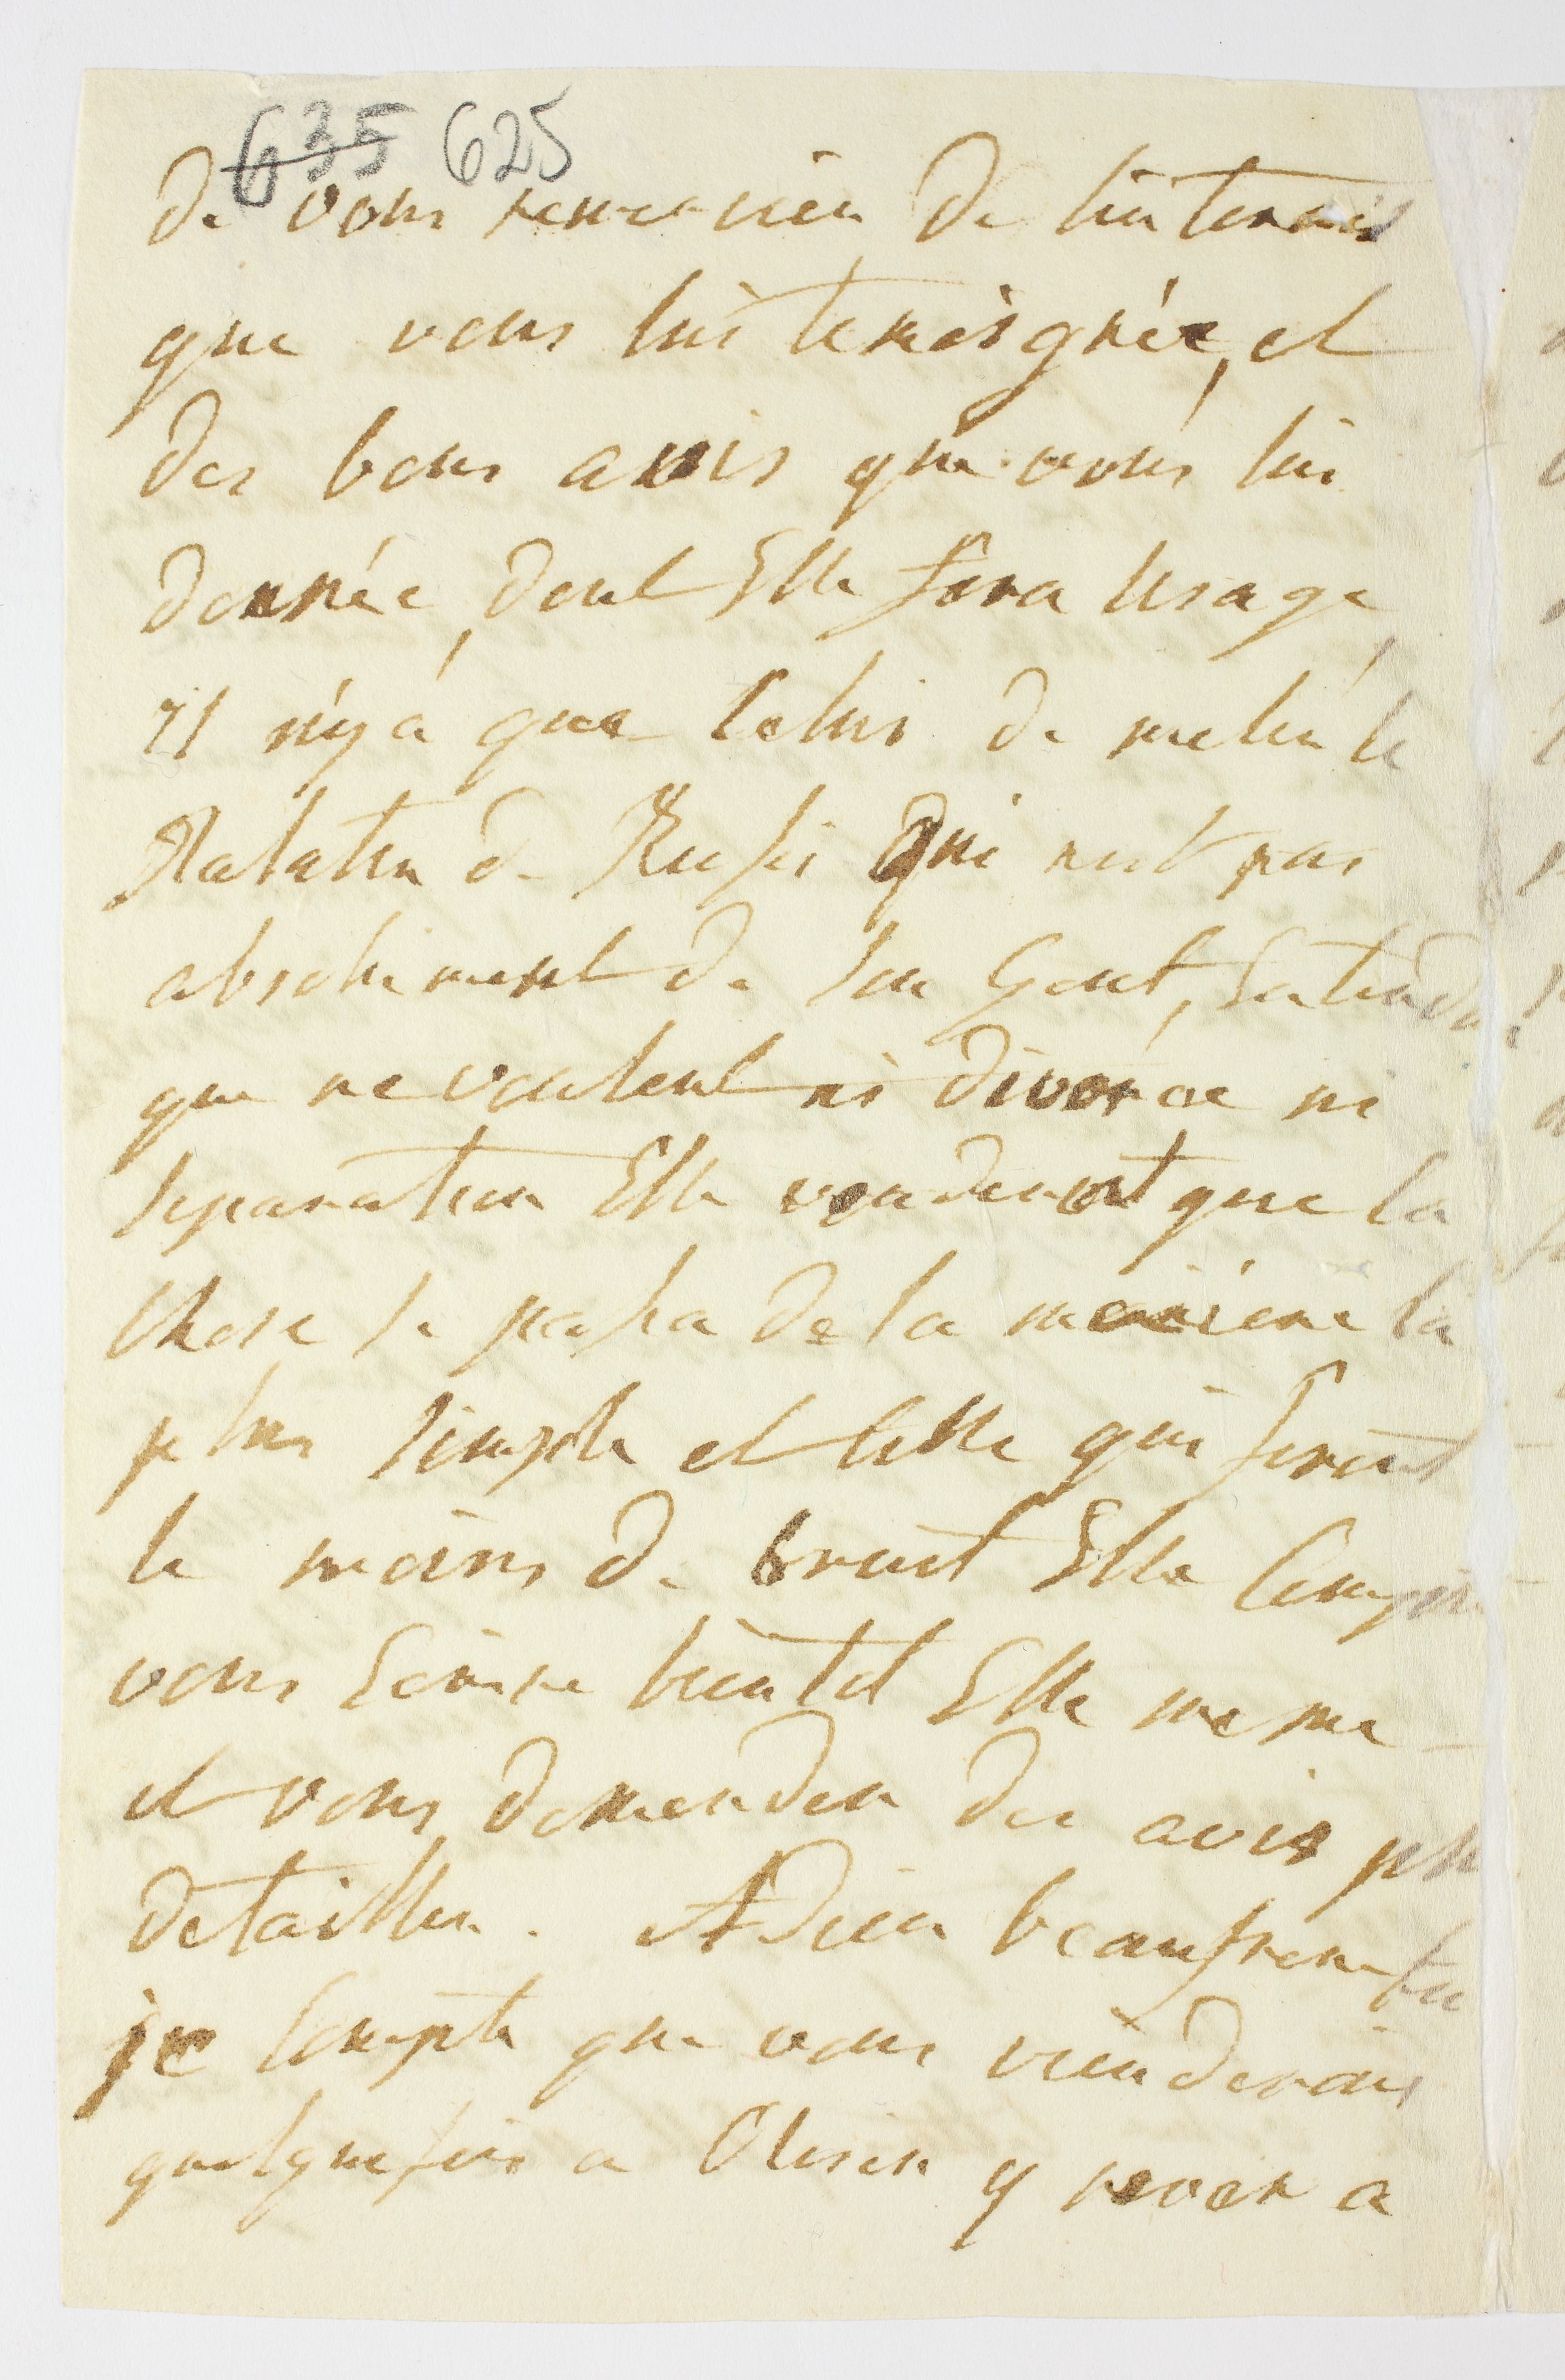 635 625
de vous remercier de linterais
que vous lui temoignée, et
des bons avis que vous lui
donnée, dont Elle fera Usage,
Il ny a que Celui de metre le
Palatin de Kiefs Qui nest pas
absolument de son Gout,
que ne voulent ni divorce ni
separation Elle vouderoit que la
Chose se passa de la maniere la
plus simple et Celle qui feroit
le moins de bruit Elle Compte
vous Ecrire bientot Elle meme
et vous demender des avis plus
detailler. Adieu beaufrere
je Compte que vous vienderais
quelquefois a Olesin y rever a